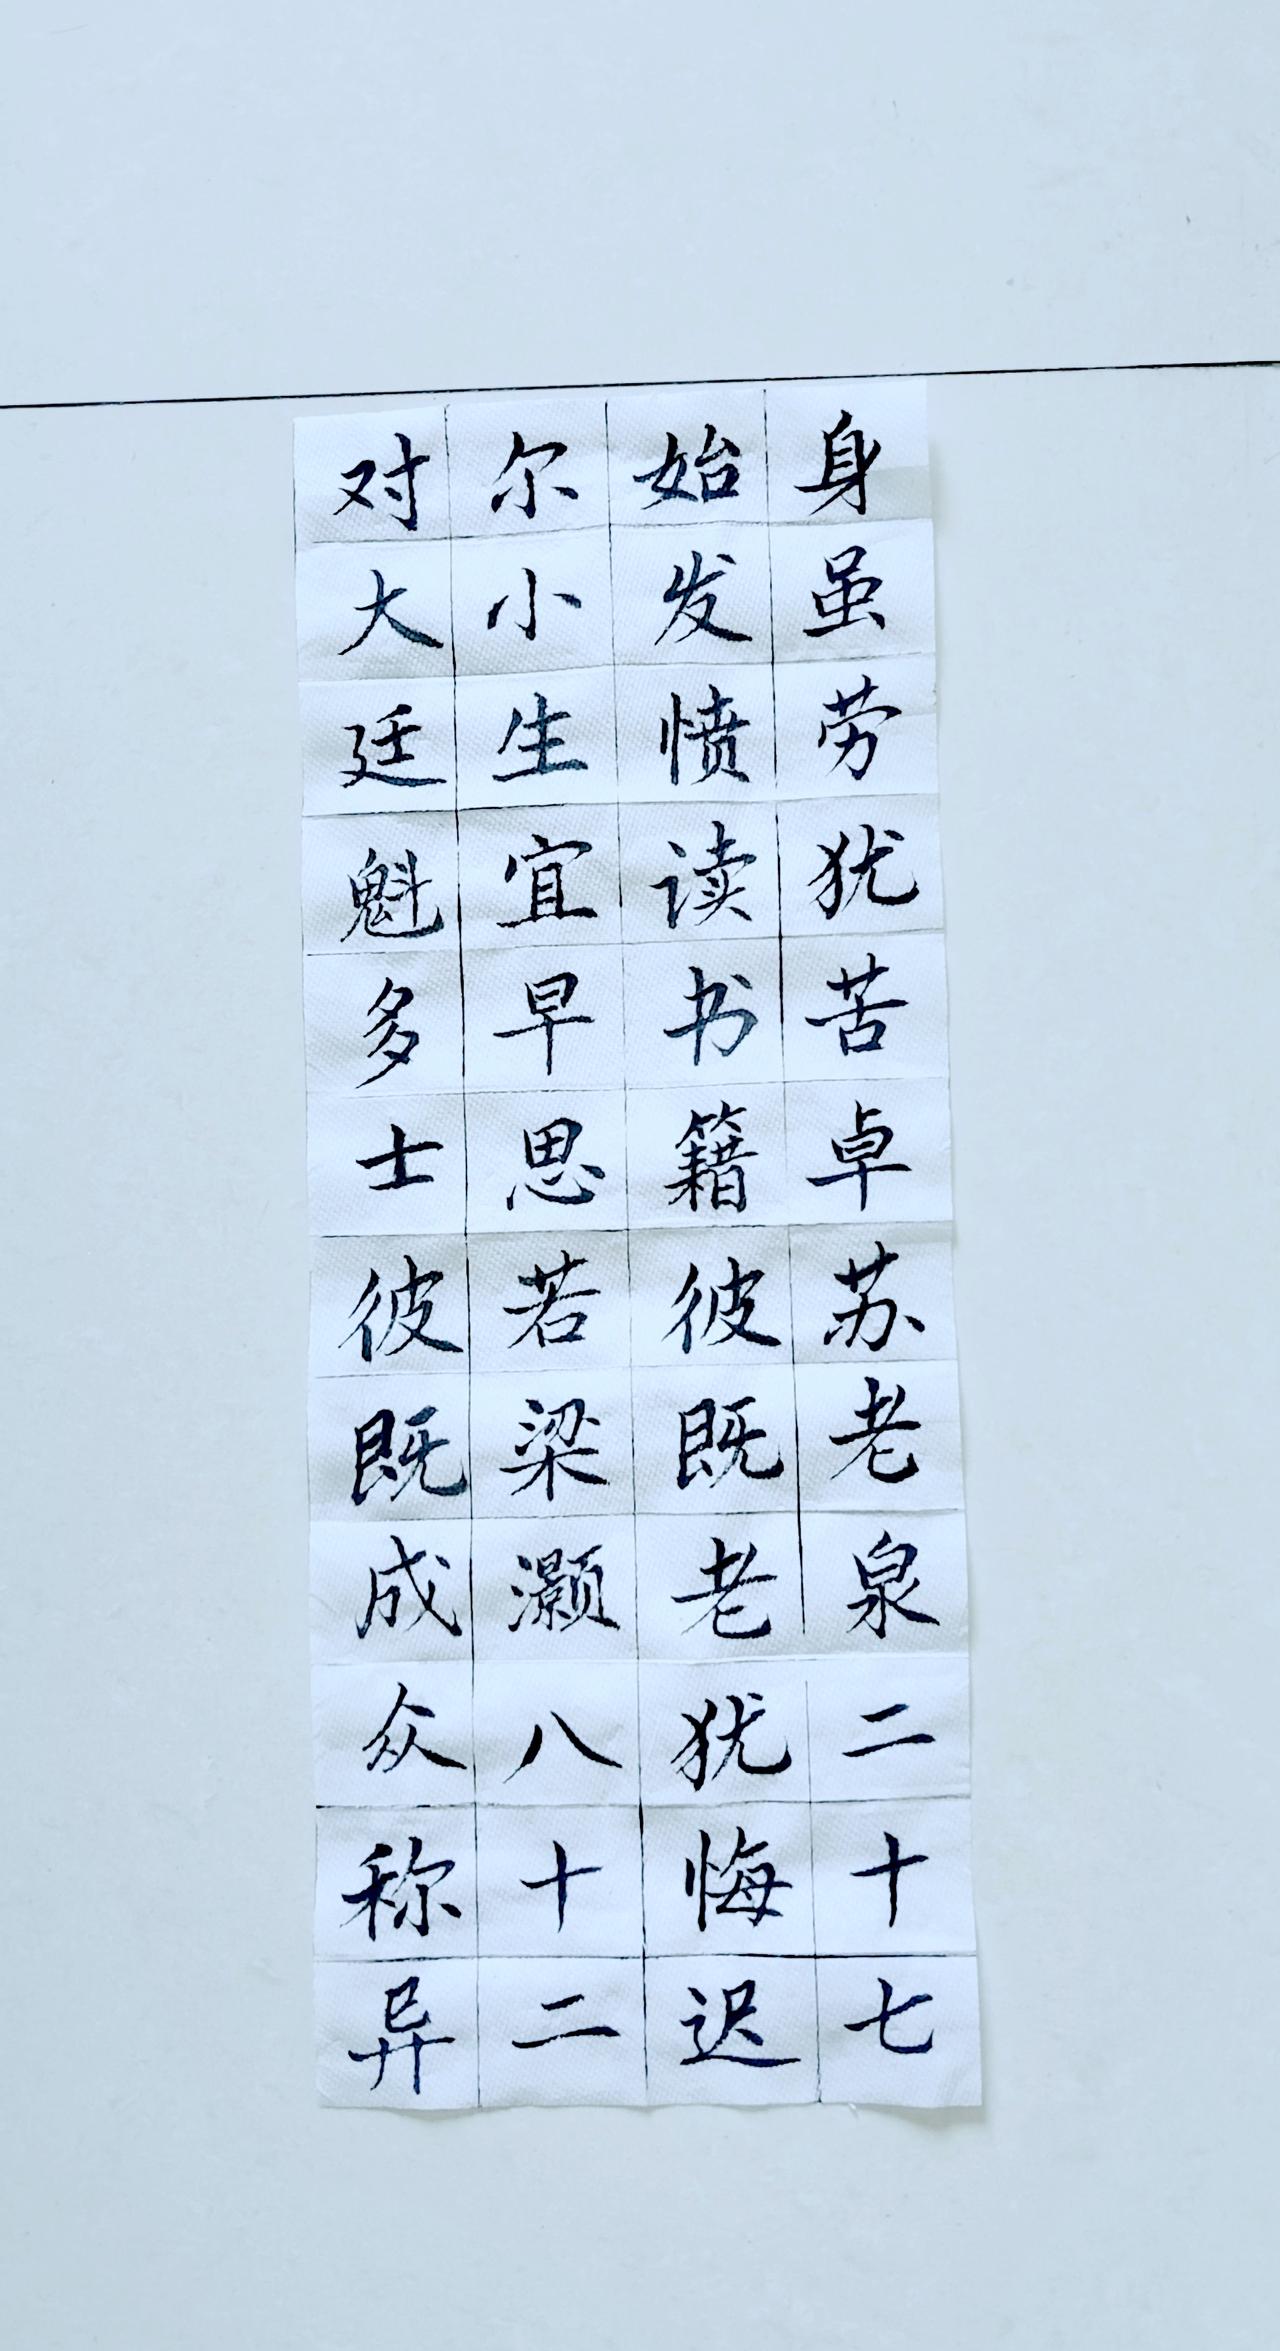 身虽劳犹苦卓苏老泉二十七
始发愤读书籍彼既老犹悔迟
尔小生宜早思若梁灏八十二
对大廷魁多士彼既成众称异